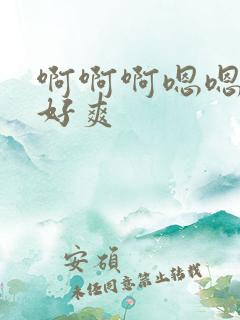 啊啊啊嗯嗯
好爽
安碩
未经同意禁止转载